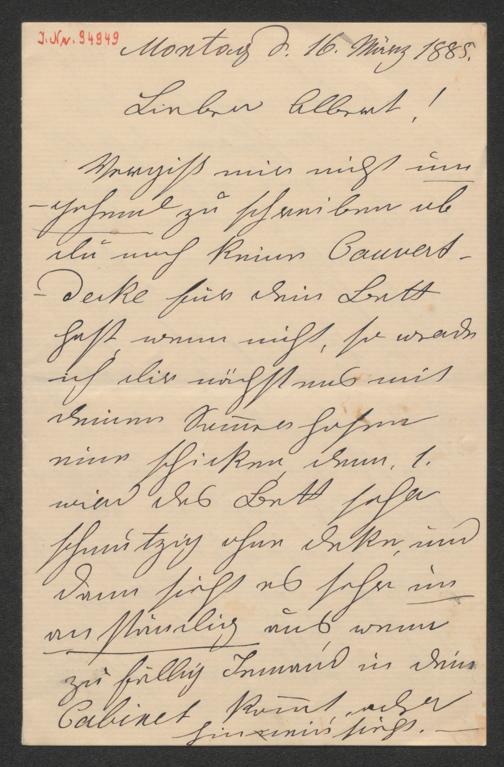 I.Nr. 94949
Montag d. 16. März 1885.
Lieber Albert!
Vergiß mir nicht um-
-gehend zu schreiben ob
du noch keine Couvert-
-Decke für dein Bett
hast, wenn nicht, so werde
ich dir nächstens mit
deinen Sommerhosen
eine schicken, denn, 1.
wird das Bett sehr
schmutzig ohne Deke, und
dann sieht es sehr un-
anständig aus wenn
zufällig Jemand in dein
Cabinet kommt oder
hineinsieht. —